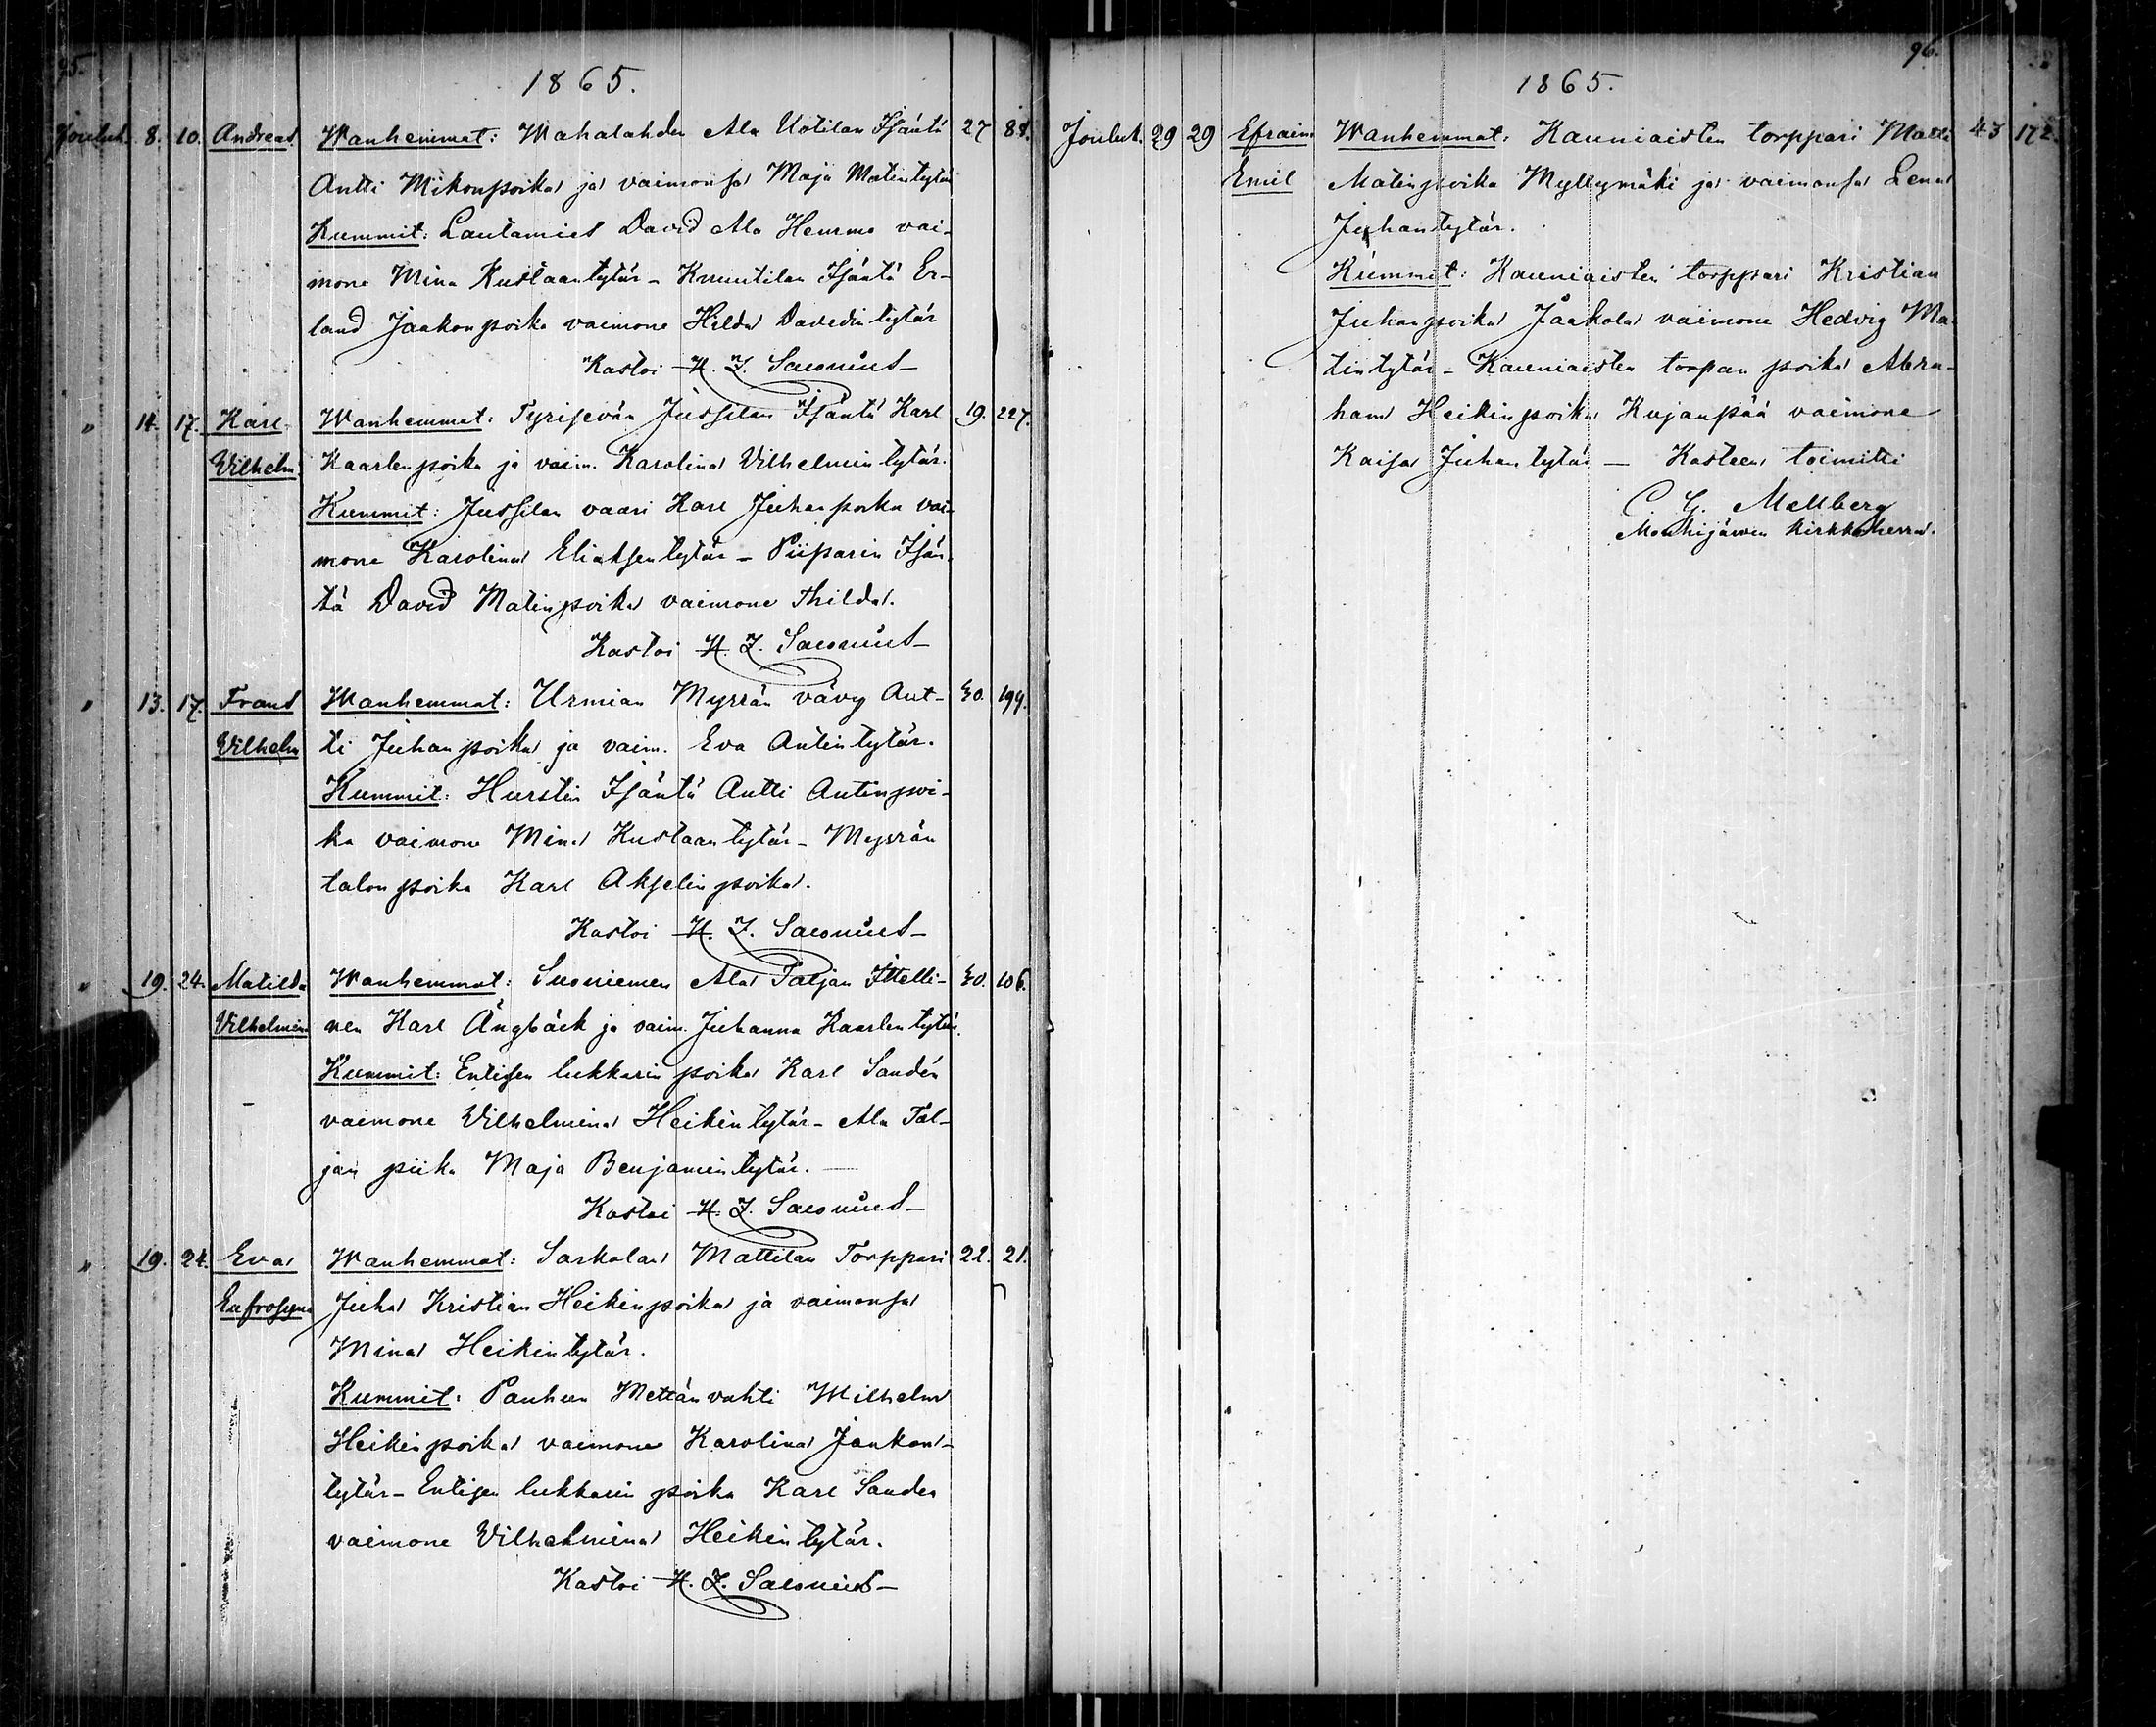 95.
1865.
Jouluk. 8. 10. Andreas Wanhemmat: Wahalahden Ala Uotilan Isäntä 27 88.
Antti Mikonpoika ja vaimonsa Maja Matintytär
Kummit: Lautamies David Ala Hemmo vai-
mone Mina Kustaantytär - Knuutilan Isäntä Er-
land Jaakonpoika vaimone Hilda Davidintytär
Kastoi H. J. Saxonius
" 14. 17. Karl Wanhemmat: Tyrisevän Jussilan Isäntä Karl 19. 227.
Vilhelm Kaarlenpoika ja vaim. Karolina Vilhelmintytär.
Kummit: Jussilan vaari Karl Juhanpoika vai-
mone Karolina Eliaksentytär - Piiparin Isän-
tä David Matinpoika vaimone Thilda.
Kastoi H. J. Saxonius
" 13. 17. Frans Wanhemmat: Urmian Myrrän vävy Ant- 30. 199.
Vilhelm ti Juhanpoika ja vaim. Eva Antintytär.
Kummit: Hurstin Isäntä Antti Antinpoi-
ka vaimone Mina Kustaantytär - Myrrän
talonpoika Karl Akselinpoika.
Kastoi H. J. Saxonius
" 19. 24. Matilda Wanhemmat: Suoniemen Ala Taljan Ittelli- 30. 106.
Vilhelmina nen Karl Ängbäck ja vaim. Juhanna Kaarlentytär.
Kummit: Entisen lukkarin poika Karl Sandén
vaimone Vilhelmina Heikintytär - Ala Tal-
jan piika Maja Benjamintytär.
Kastoi H. J. Saxonius
" 19. 24. Eva Wanhemmat: Sarkolan Mattilan Torppari 22. 21.
Eufrosyna Juha Kristian Heikinpoika ja vaimonsa
Mina Heikintytär.
Kummit: Pauhun Mettänvahti Wilhelm
Heikinpoika vaimone Karolina Jaakon-
tytär - Entisen lukkarin poika Karl Sanden
vaimone Vilhelmina Heikintytär.
Kastoi H. J. Saxonius
96.
1865.
Jouluk. 29 29 Efraim Wanhemmat: Kauniaisten torppari Matti 43 172.
Emil Matinpoika Myllymäki ja vaimonsa Lena
Juhantytär.
Kummit: Kauniaisten torppari Kristian
Juhanpoika Jaakola vaimone Hedvig Ma-
tintytär - Kauniaisten torpan poika Abra-
ham Heikinpoika Kujanpää vaimone
Kaisa Juhantytär — Kasteen toimitti
C. G. Mellberg
Mouhijärwen kirkkoherra.